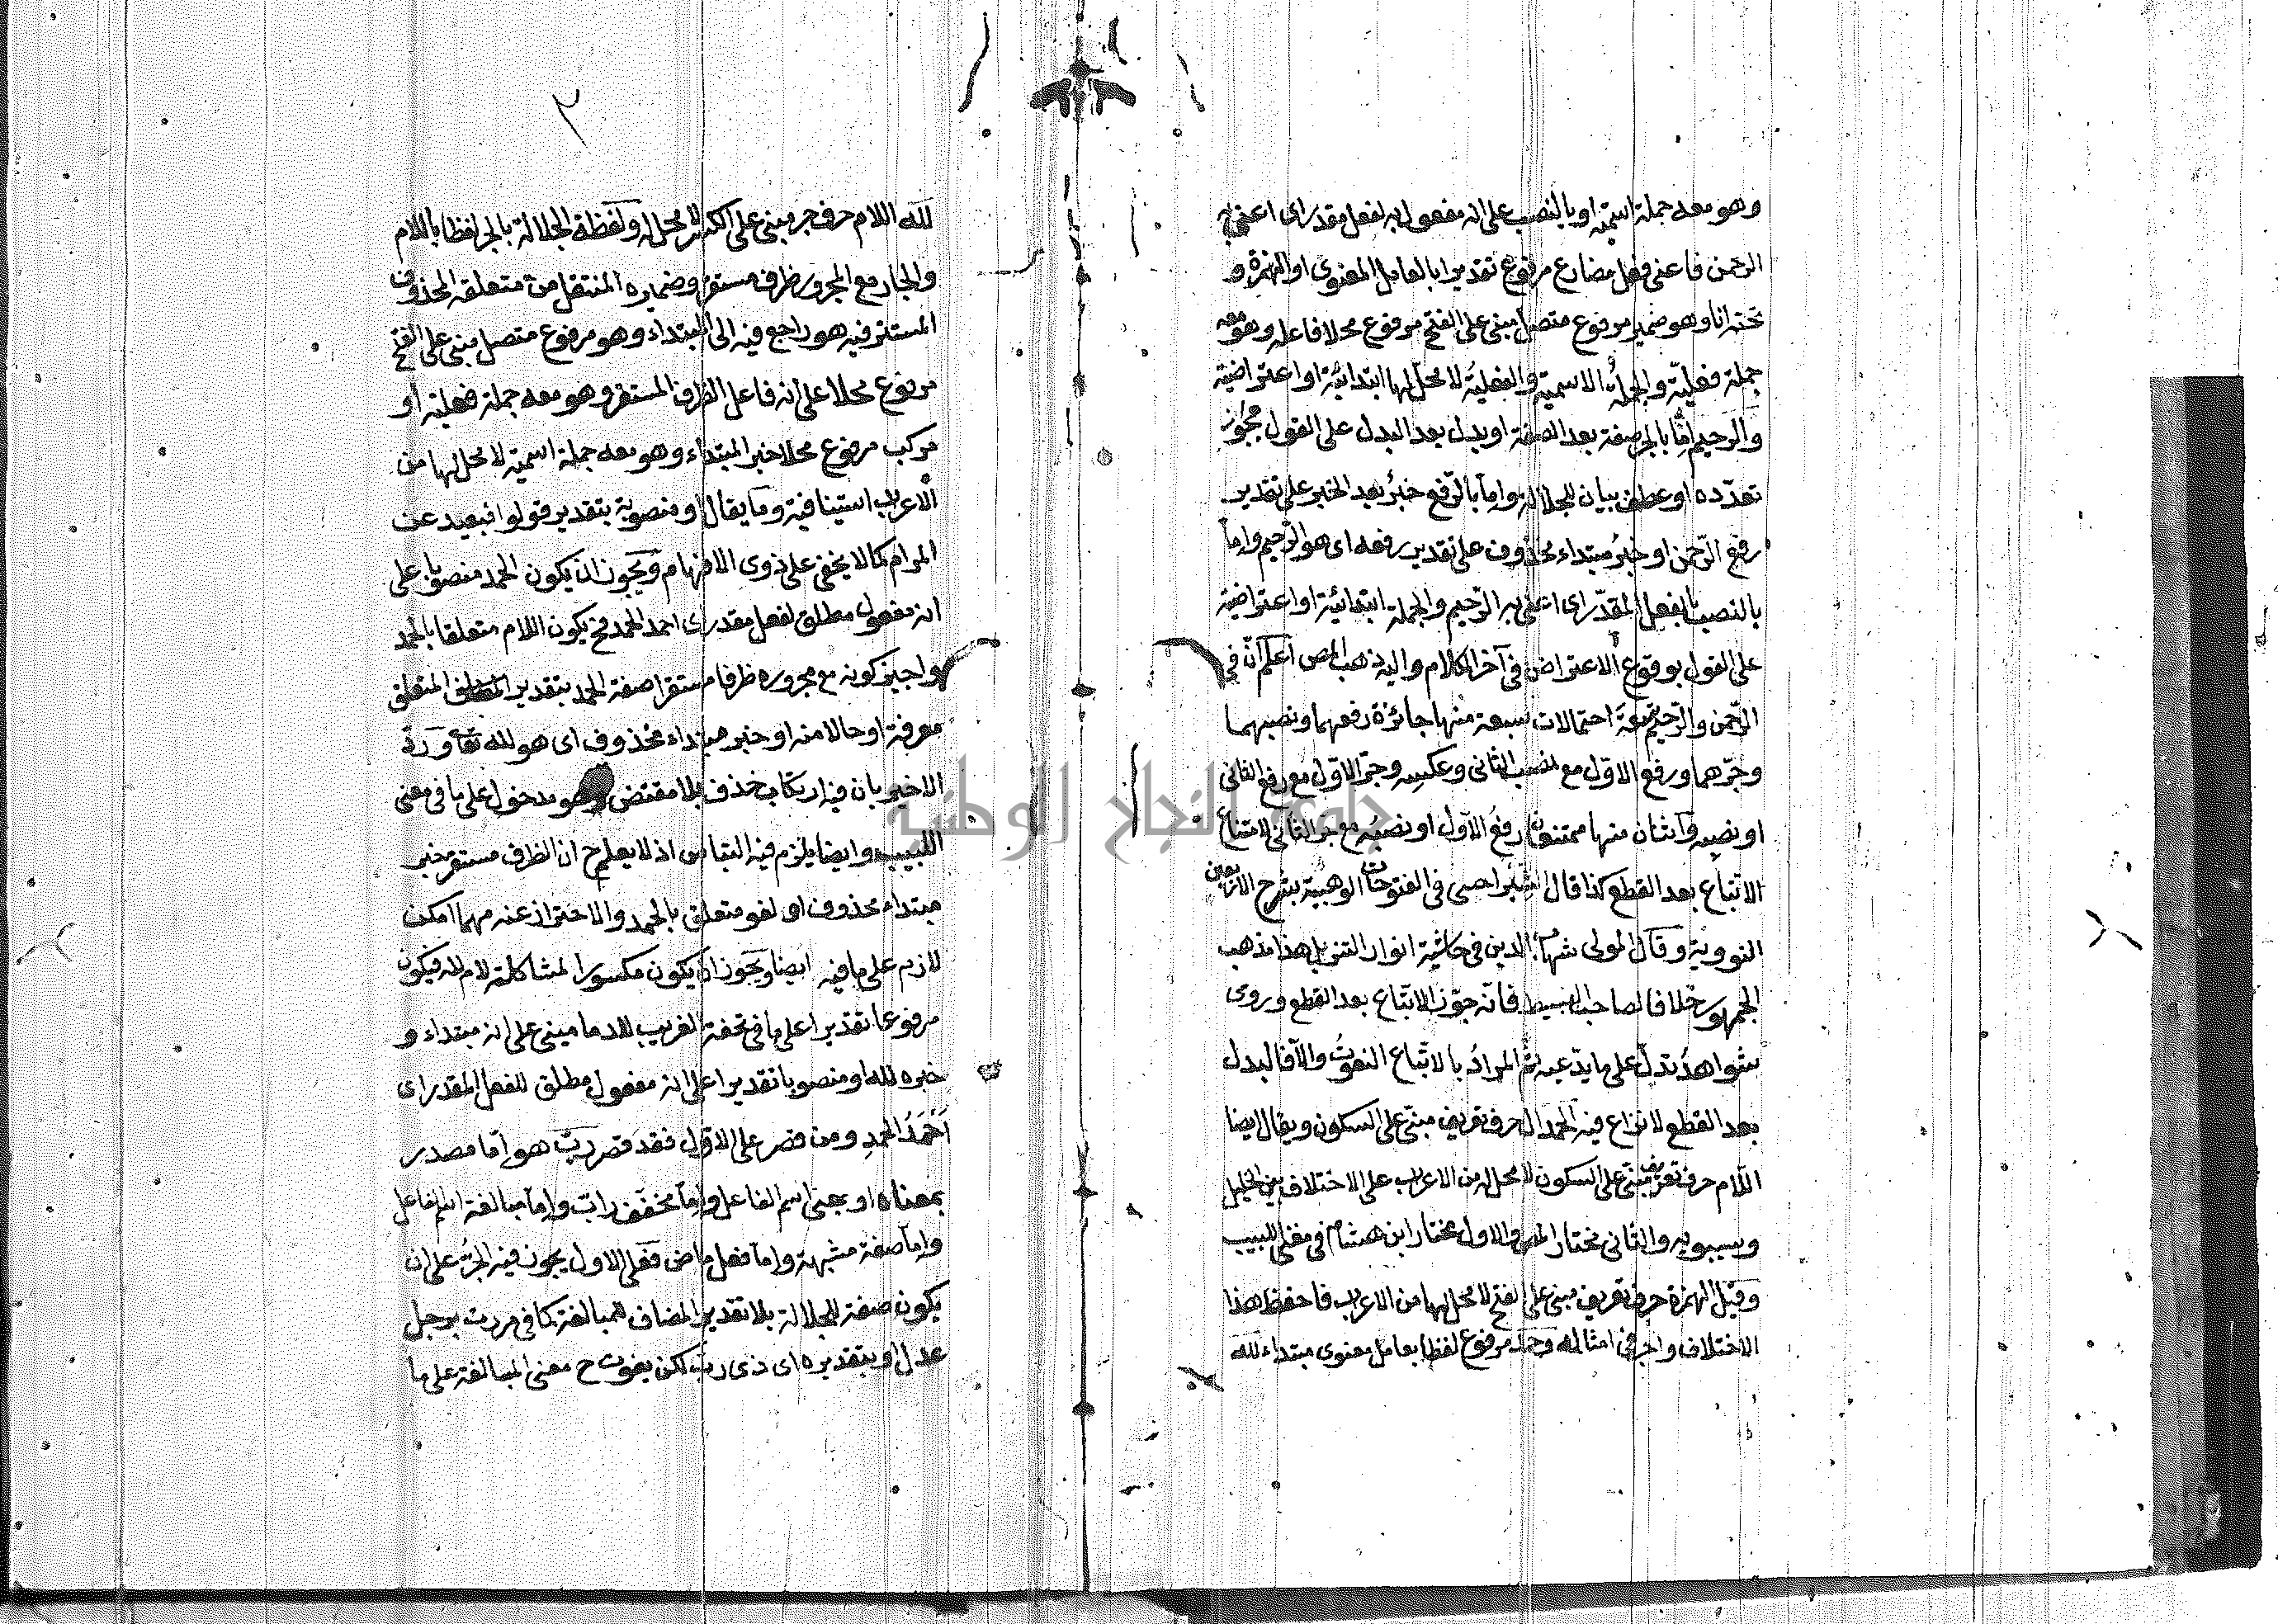 وهو معه جملة اسمية او بالنصب على انه مفعول به لفعل مقدر اى اعنى به
الرحمن فاعنى فعل مضارع مرفوع تقديرا بالعامل المعنوى او الهمزة و
تحته انا وهو ضمير مرفوع متصل مبنى على الفتح مرفوع محلا فاعله وهو معه
جملة فعليّة والجملة الاسمية والفعلية لا محل لها ابتدائية او اعتراضية
والرحيم امّا بالجر صفة بعد الصفة او بدل بعد البدل على القول بجوز
تعدّده او عطف بيان للجلالة واما بالرّفع خبر بعد الخبر على تقدير
رفع الرّحمن او خبر مبتداء محذوف على تقدير رفعه اى هو الرّحيم واما
بالنصب بالفعل المقدّر اى اعنى به الرّحيم والجملة ابتدائية او اعتراضية
على القول بوقوع الاعتراض فى آخر الكلام واليه ذهب المص اعلم انّ فى
الرّحمن والرّحيم تسعة احتمالات سبعة منها جائزة رفعهما ونصبهما
وجرّهما ورفع الاوّل مع نصب الثانى وعكسه وجرّ الاوّل مع رفع الثانى
او نصبه واثنان منها ممتنعان رفع الاول او نصبه مع جر الثانى لامتناع
الاتباع بعد القطع كذا قال الشبراحصى فى الفتوحات الوهبية بشرح الاربعين
النووية وقال المولى شهاب الدين فى حاشية انوار التنزيل هذا مذهب
الجمهور خلافا لصاحب البسيط فانّه جوّز الاتّباع بعد القطع وروى
شواهد تدلّ على ما يدّعيه ثمّ المراد بالاتّباع النعوت والّا فالبدل
بعد القطع لا نزاع فيه الحمد ال حرف تعريف مبنى على السكون ويقال ايضا
اللّام حرف تعريف مبنى على السكون لا محل له من الاعراب على الاختلاف بين الخليل
وسيبويه والثانى مختار المص والاول مختار ابن هشام فى مغنى اللبيب
وقيل الهمزة حرف تعريف مبنى على الفتح لا محل لها من الاعراب فاحفظ هذا
الاختلاف واجر فى امثاله وحمد مرفوع لفظا بعامل معنوى مبتداء لله
لله اللام حرف جر مبنى على الكسر لا محل له ولفظة الجلالة بالجر لفظا باللام
والجار مع المجرور ظرف مستقر وضميره المنتقل من متعلقه المحذوف
المستتر فيه هو راجع فيه الى المبتداء وهو مرفوع متصل مبنى على الفتح
مرفوع محلا على انه فاعل الظرف المستقر وهو معه جملة فعلية او
مركب مرفوع محلا خبر المبتداء وهو معه جملة اسمية لا محل لها من
الاعراب استينافية وما يقال او منصوبة بتقدير قولوا فبعيد عن
المرام كما لا يخفى على ذوى الافهام ويجوز ان يكون الحمد منصوبا على
انه مفعول مطلق لفعل مقدر اى احمد الحمد فح يكون اللام متعلقا بالحمد
واجيز كونه مع مجروره ظرفا مستقرا صفة الحمد بتقدير المتعلق
معرفة او حالا منه او خبر مبتداء محذوف اى هو لله تعا وردّ
الاخير بان فيه ارتكاب حذف بلا مقتض وهو مدخول على ما فى مغنى
اللبيب وايضا يلزم فيه التباس اذ لا يعلم ح ان الظرف مستقر خبر
مبتداء محذوف او لغو متعلق بالحمد والاحتراز عنه مهما امكن
لازم على ما فيه ايضا ويجوز ان يكون مكسورا لمشاكلة لام لله فيكون
مرفوعا تقديرا على ما فى تحفة الغريب للدمامينى على انه مبتداء و
خبره لله او منصوبا تقديرا على انه مفعول مطلق للفعل المقدر اى
أَحْمَدُ الحمدِ ومن قصر على الاول فقد قصر ربّ هو امّا مصدر
بمعناه او بمعنى اسم الفاعل واما مخفّف رابّ واما مبالغة اسم الفاعل
واما صفة مشبهة واما فعل ماض فعلى الاول يجوز فيه الجر على ان
يكون صفة للجلالة بلا تقدير المضاف للمبالغة كما فى مررت برجل
عدل او بتقديره اى ذى ربّ لكن يفوت ح معنى المبالغة على ما
جامعة النجاح الوطنية